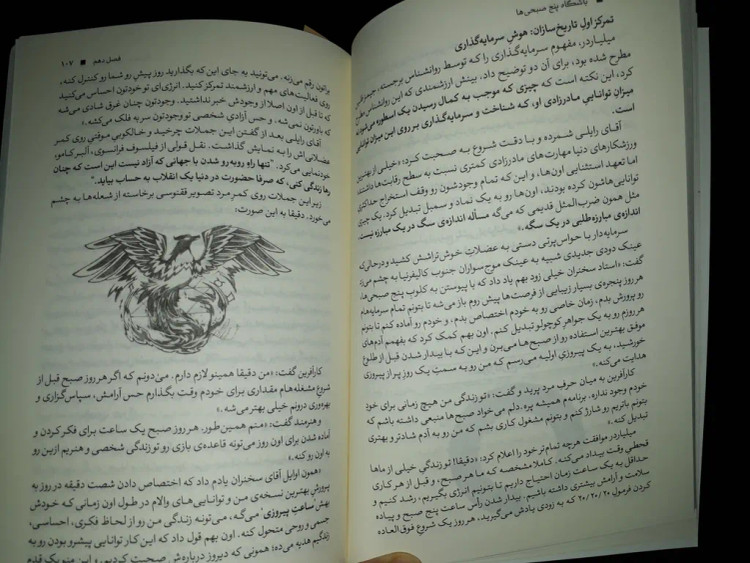 باشگاه پنج صبحی‌ها
تمرکز اول تاریخ‌سازان: هوش سرمایه‌گذاری
میلیاردر، مفهوم سرمایه‌گذاری را که توسط روانشناس برجسته، جیمز
مطرح شده بود، برای آن دو توضیح داد، بینش ارزشمندی که این روانشناس
کرد، این نکته است که چیزی که موجب به کمال رسیدن یک اسطوره می‌شود نه
میزان توانایی مادرزادی او، که شناخت و سرمایه‌گذاری بر روی این میزان توانایی
است.
آقای رایلی شمرده و با دقت شروع به صحبت کرد: «خیلی از بهترین
ورزشکارهای دنیا مهارت‌های مادرزادی کمتری نسبت به سطح رقابت‌ها داشتند
اما تعهد استثنایی اون‌ها، و این که تمام وجودشون رو وقف استخراج حداکثری
توانایی‌هاشون کرده بودند، اون‌ها رو به یک نماد و سمبل تبدیل کرد. یک چیزی
مثل همون ضرب‌المثل قدیمی که می‌گه مسأله اندازه‌ی سگ در یک مبارزه نیست،
اندازه‌ی مبارزه‌طلبی در یک سگه.»
سرمایه‌دار با حواس‌پرتی دستی به عضلات خوش‌تراشش کشید و درحالی‌که
عینک دودی جدیدی شبیه به عینک موج‌سواران جنوب کالیفرنیا به چشم می‌زد
گفت: «استاد سخنران خیلی زود بهم یاد داد که با پیوستن به کلوپ پنج صبحی‌ها،
هر روز پنجره‌ی بسیار زیبایی از فرصت‌ها پیش روم باز می‌شه تا بتونم تمام سرمایه‌هام
رو پرورش بدم، زمان خاصی رو به خودم اختصاص بدم، و خودم رو آماده کنم تا بتونم
هر روزم رو به یک جواهر کوچولو تبدیل کنم. اون بهم کمک کرد که بفهمم آدم‌های
موفق بهترین استفاده رو از صبح‌ها می‌برن و این که با بیدار شدن قبل از طلوع
خورشید، به یک پیروزی اولیه می‌رسم که من رو به سمت یک روز پر از پیروزی
هدایت می‌کنه.»
کارآفرین به میان حرف مرد پرید و گفت: «تو زندگی من هیچ زمانی برای خودِ
خودم وجود نداره. برنامه‌م همیشه پره. دلم می‌خواد صبح‌ها منبعی داشته باشم که
بتونم باتریم رو شارژ کنم و بتونم مشغول کاری بشم که من رو به آدم شادتر و بهتری
تبدیل کنه.»
میلیاردر موافقت هرچه تمام‌تر خود را اعلام کرد: «دقیقا! تو زندگیِ خیلی از ماها
قحطیِ وقت بیداد می‌کنه. کاملا مشخصه که ما هر صبح، و قبل از هر کاری
حداقل به یک ساعت زمان احتیاج داریم تا بتونیم انرژی بگیریم، رشد کنیم و
سلامت و آرامش بیشتری داشته باشیم. بیدار شدن رأس ساعت پنج صبح و پیاده
کردن فرمول ۲۰/۲۰/۲۰ که به زودی یادش می‌گیرید، هر روز یک شروع فوق‌العاده
فصل دهم ■ ۱۰۷
براتون رقم می‌زنه. می‌تونید به جای این که بگذارید روز پیش رو شما رو کنترل کنه،
روی فعالیت‌های مهم و ارزشمند تمرکز کنید. انرژی‌ای تو خودتون احساس می‌کنید
که تا قبل از اون اصلا از وجودش خبر نداشتید. وجودتون چنان غرق شادی می‌شه
که باورتون نمی‌شه. و حس آزادیِ شخصی تو وجودتون سر به فلک می‌کشه.»
آقای رایلی بعد از گفتن این جملات چرخید و خالکوبی موقتی روی کمر
عضلانی‌اش را به نمایش گذاشت. نقل قولی از فیلسوف فرانسوی، آلبر کامو،
خودنمایی می‌کرد. "تنها راه روبه‌رو شدن با جهانی که آزاد نیست این است که چنان
رها زندگی کنی، که صرفا حضورت در دنیا یک انقلاب به حساب بیاید."
زیر این جملات روی کمرِ مرد تصویر ققنوسی برخاسته از شعله‌ها به چشم
می‌خورد. دقیقا به این صورت:
کارآفرین گفت: «من دقیقا همینو لازم دارم. می‌دونم که اگر هر روز صبح قبل از
شروع مشغله‌هام مقداری برای خودم وقت بگذارم حس آرامش، سپاس‌گزاری و
بهره‌وری درونم خیلی بهتر می‌شه.»
و هنرمند گفت: «منم همین‌طور. هر روز صبح یک ساعت برای فکر کردن و
آماده شدن برای اون روز می‌تونه قاعده‌ی بازی رو تو زندگی شخصی و هنریم از این رو
به اون رو کنه.»
«همون اوایل آقای سخنران یادم داد که اختصاص دادن شصت دقیقه در روز به
پرورش بهترین نسخه‌ی من و توانایی‌های والام در طول اون زمانی که خودش
بهش 'ساعتِ پیروزی' می‌گه، می‌تونه زندگی من رو از لحاظ فکری، احساسی،
جسمی و روحی متحول کنه. اون بهم قول داد که این کار توانایی پیشرو بودن رو به
زندگیم هدیه می‌ده؛ همونی که دیروز درباره‌ش صحبت کردیم. و این منو یک قدم